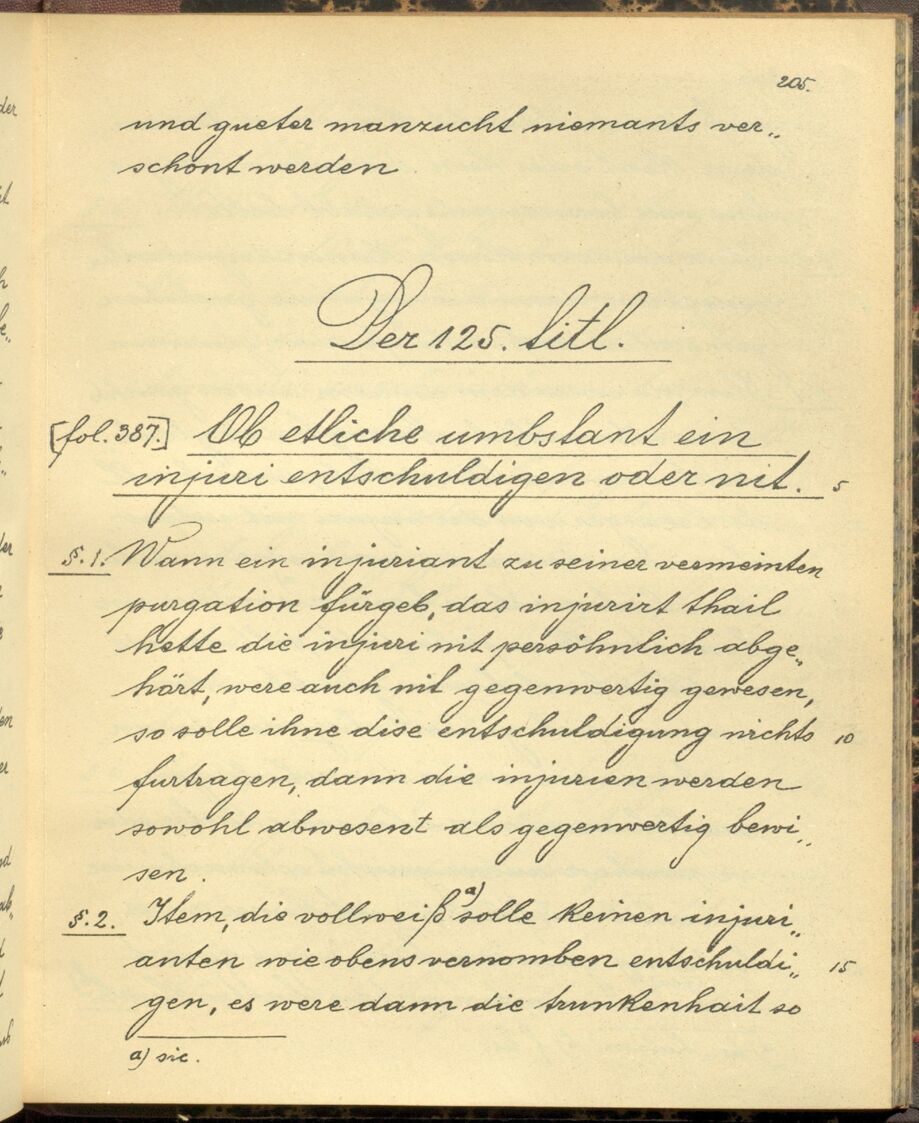 205.
und gueter manzucht niemants ver„
schont werden
Der 125. titl.
[fol. 387.] Ob etliche umbstant ein
injuri entschuldigen oder nit. 5
§. 1. Wann ein injuriant zu seiner vermeinten
purgation fürgeb, das injurirt thail
hette die injuri nit persöhnlich abge„
härt, were auch nit gegenwertig gewesen,
so solle ihne dise entschuldigung nichts 10
furtragen, dann die injurien werden
sowohl abwesent als gegenwertig bewi„
sen.
§. 2. Item, die vollweiß a) solle keinen injuri„
anten wie obens vernomben entschuldi„ 15
gen, es were dann die trunkenhait so
a) sic.